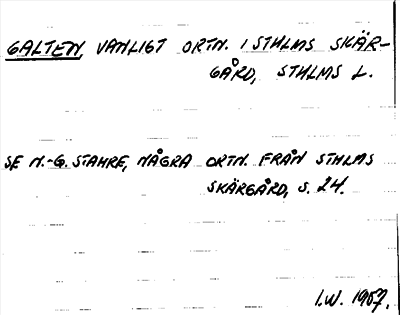 GALTEN, VANLIGT ORTN. I STHLMS SKÄR-
GÅRD, STHLMS L.
SE N.-G. STAHRE, NÅGRA ORTN. FRÅN STHLMS
SKÄRGÅRD, S. 24.
I.W. 1957.